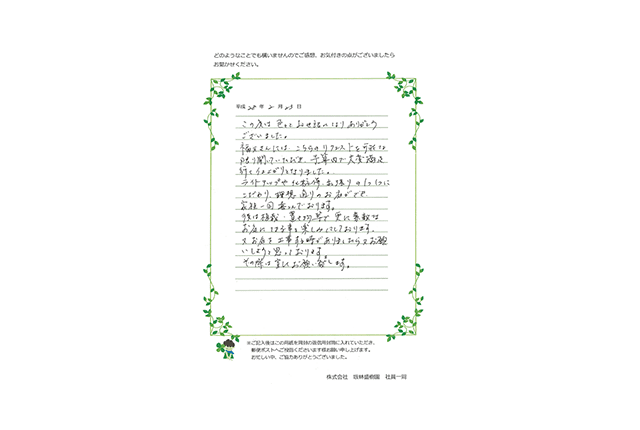 どのようなことでも構いませんのでご感想、お気付きの点がございましたら
お聞かせください。
平成 28 年 2 月 23 日
この度は色々とお世話になりありがとう
ございました。
さんには こちらのリクエストを可能な
限り聞いていただき、予算内で大変満足
行く仕上がりとなりました。
ライトアップや 水の一つ一つに
こだわり、理想通りのお庭ができ、
家族一同喜んでおります。
今後は 植栽・ 等で更に素敵な
お庭に する事を楽しみにしております。
又お庭を工事する時がありましたら又お願
いしようと思っております。
その際は宜しくお願い致します。
※ご記入後はこの用紙を同封の返信用封筒に入れていただき、
郵便ポストへご投函くださいます様お願い申し上げます。
お忙しい中、ご協力ありがとうございました。
株式会社 盛樹園 社員一同